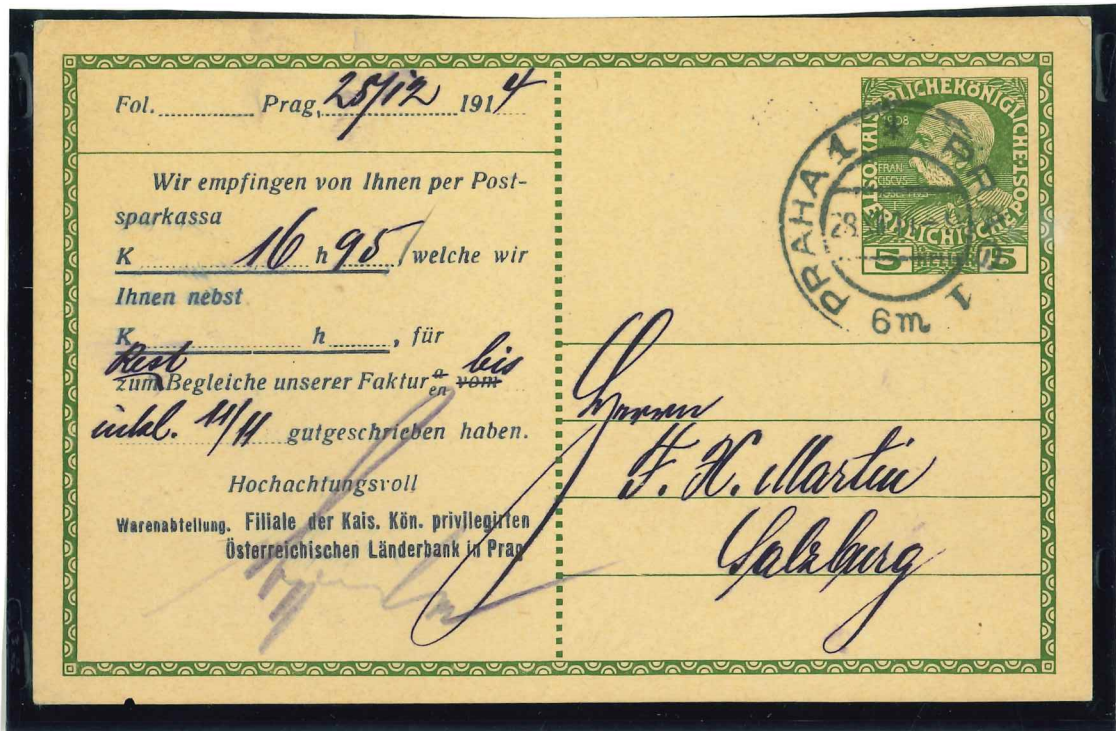 Fol. Prag, 25/12 1914
Wir empfingen von Ihnen per Post-
sparkassa
K 16 h 95, welche wir
Ihnen nebst
K h , für
Rest
zum Begleiche unserer Faktur a/en vom bis
inkl. 11/11 gutgeschrieben haben.
Hochachtungsvoll
Warenabteilung. Filiale der Kais. Kön. privilegirten
Österreichischen Länderbank in Prag
1908
FRAN
CISCVS
IOSEPHVS
5 HELLER 5
PRAHA 1 * PRAG 1
6m
Herrn
F. X. Martin
Salzburg